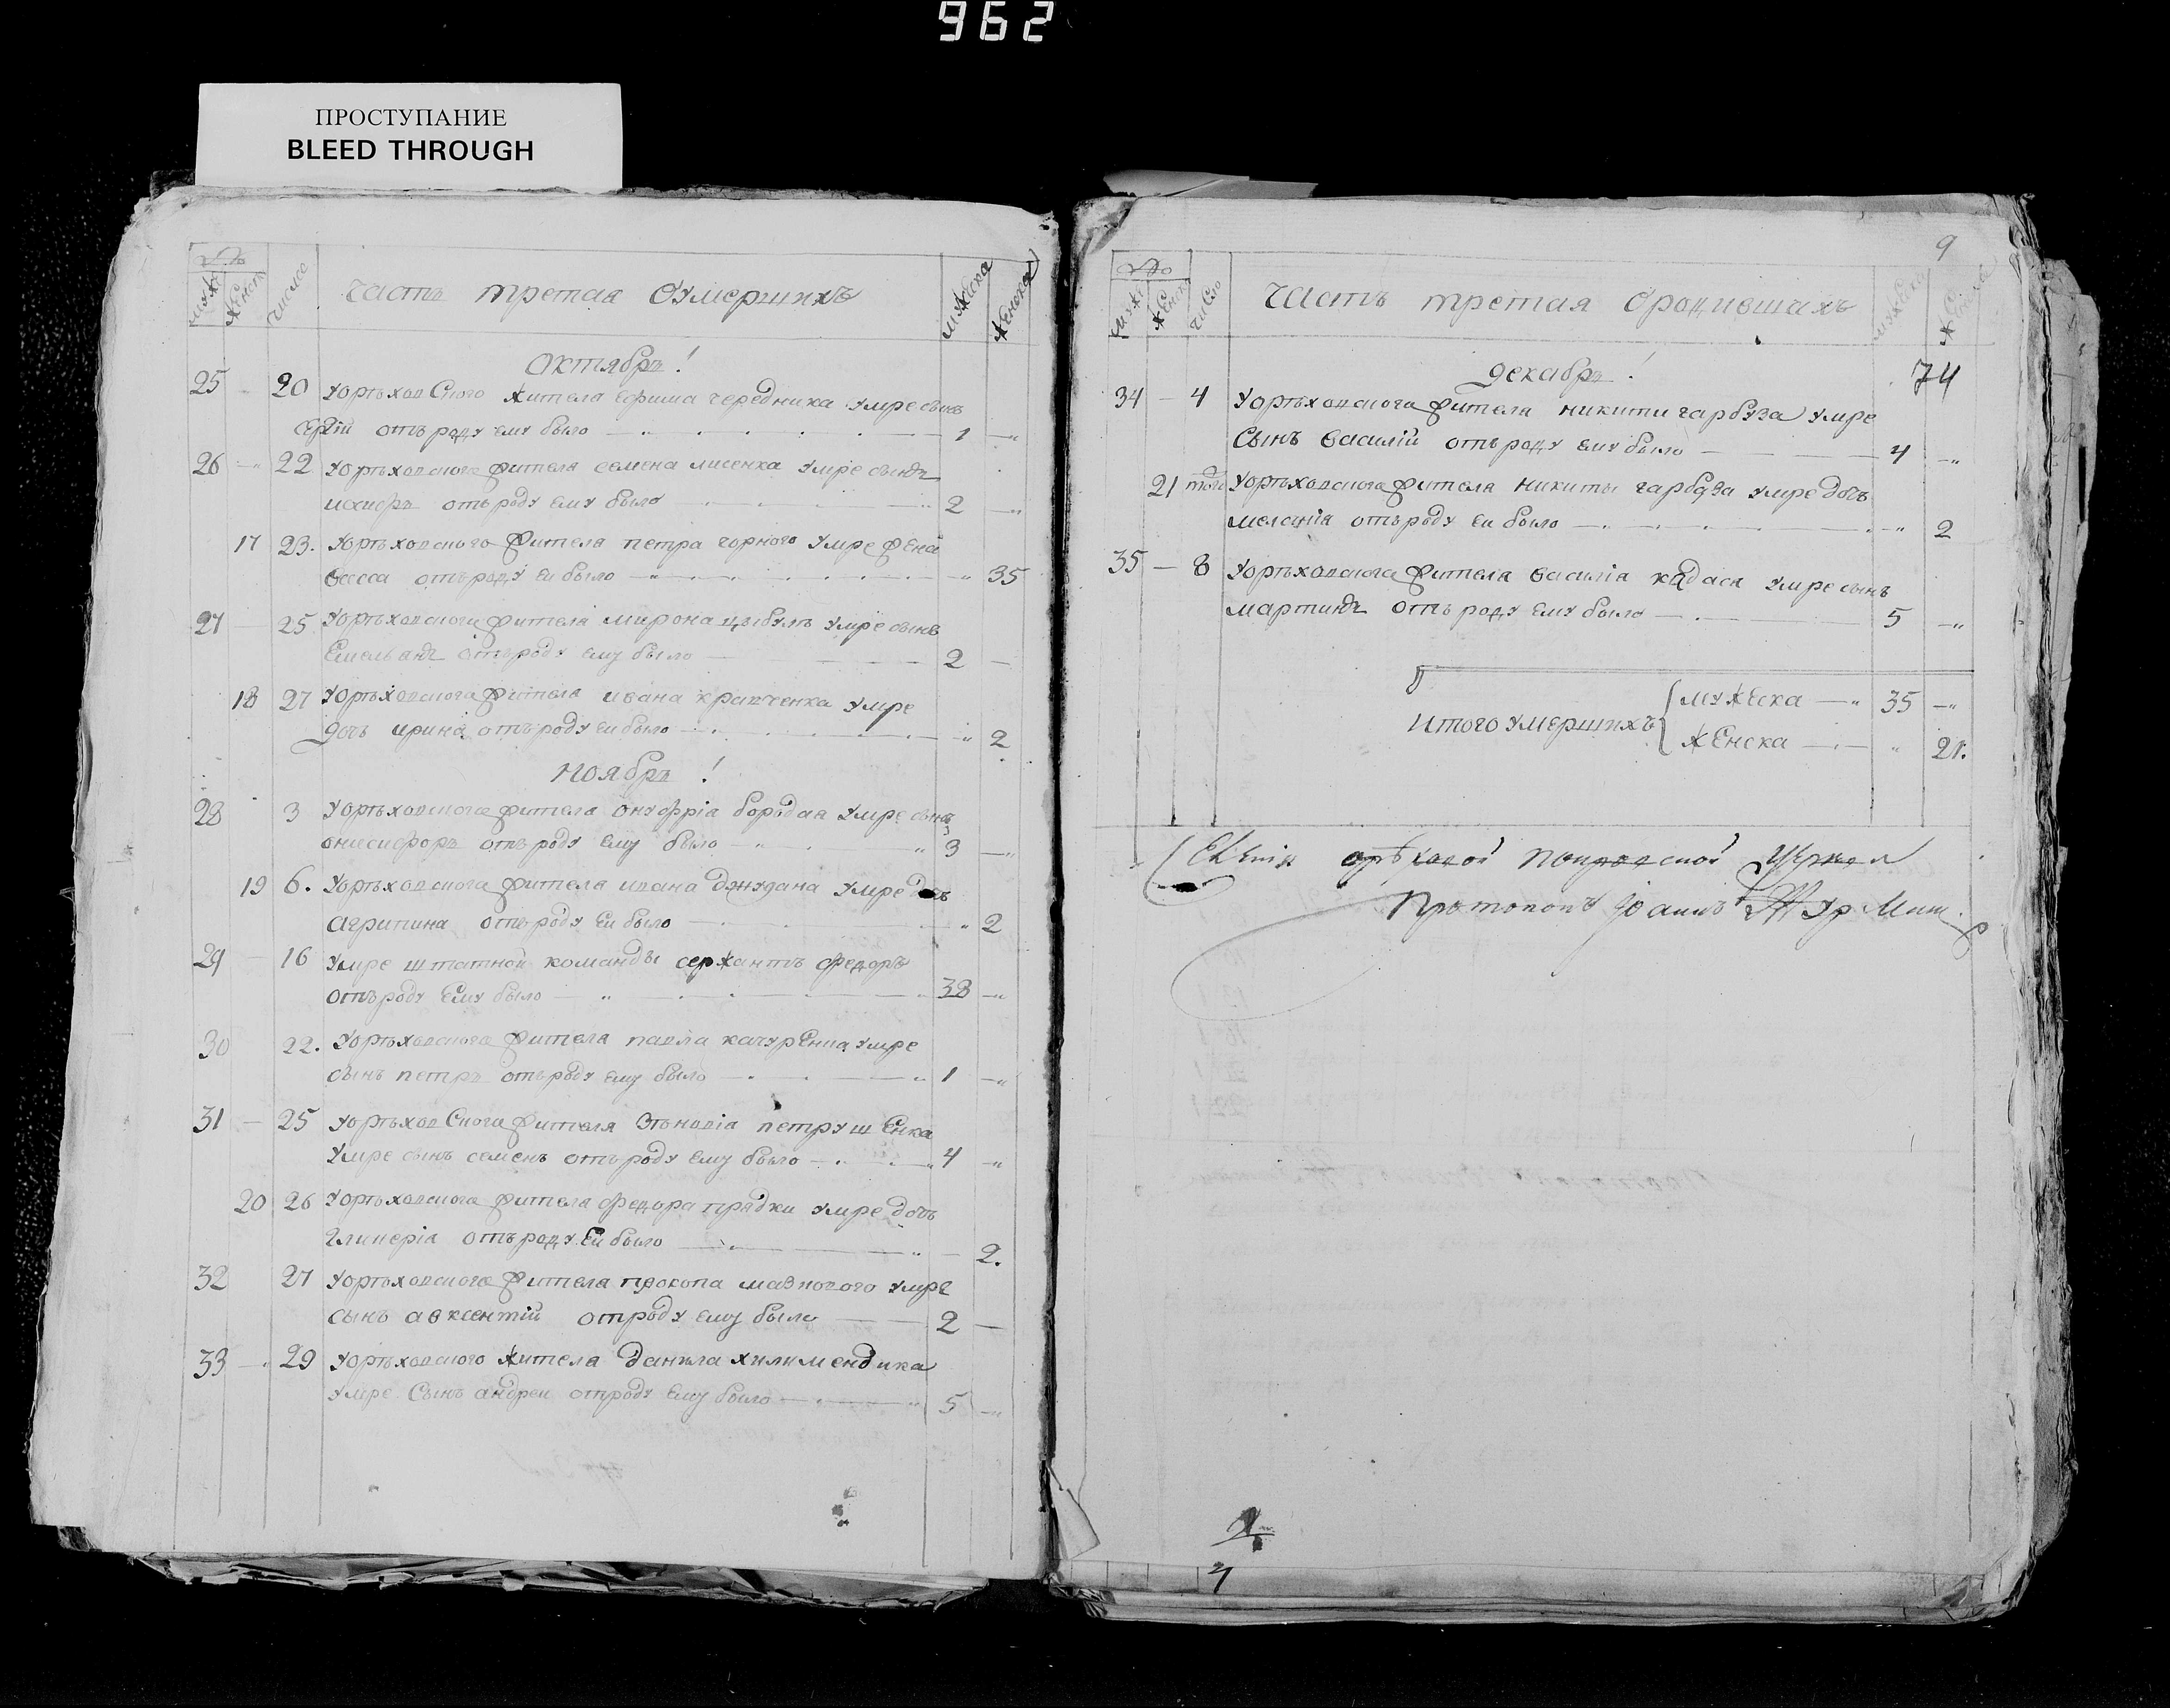 962
ПРОСТУПАНИЕ
BLEED THROUGH
№
мужс женск число часть третая оумершихъ мужеска женска
Октябрь!
25 20 Уорѣховского жителя Ефима чередника умре сынъ
Сергій отъроду ему было 1
26 22 Уорѣховского жителя семена лисенка умре сынъ
отъроду ему было 2
17 23. Уорѣховского жителя петра чорного умре жена
васса отъроду ей было 35
27 25 Уорѣховского жителя мирона цыбулѣ умре сынъ
Емельянъ отъроду ему было 2
18 27 Уорѣховского жителя ивана кравченка умре
дочь ирина отъроду ей было 2
Ноябрь!
28 3 Уорѣховского жителя онуфрія умре сынъ
онисифоръ отъроду ему было 3
19 6. Уорѣховского жителя ивана джудана умре дочь
агрипина отъроду ей было 2
29 16 Умре штатной команды сержантъ федоръ
отъроду ему было 38
30 22. Уорѣховского жителя павла качуренка умре
сынъ петръ отъроду ему было 1
31 25 Уорѣховского жителя Зѣновія петрушенка
умре сынъ семенъ отъроду ему было 4
20 26 Уорѣховского жителя федора прядки умре дочь
гликерія отъроду ей было 2.
32 27 Уорѣховского жителя прокопа умре
сынъ авксентій отроду ему было 2
33 29 Уорѣховского жителя данила хилимендика
умре сынъ андрей отроду ему было 5
9
№
мужс женск число часть третая ородившихъ мужеска женска
74
Декабрь!
34 4 Уорѣховского жителя никити гарбуза умре
сынъ василій отъроду ему было 4
21 того Уорѣховского жителя никиты гарбуза умре дочь
меланія отъроду ей было 2
35 8 Уорѣховского жителя василія кадаса умре сынъ
мартинъ отъроду ему было 5
мужеска 35
итого умершихъ
женска 21.
орѣховой покровской церкви
Протопопъ Іоаннъ